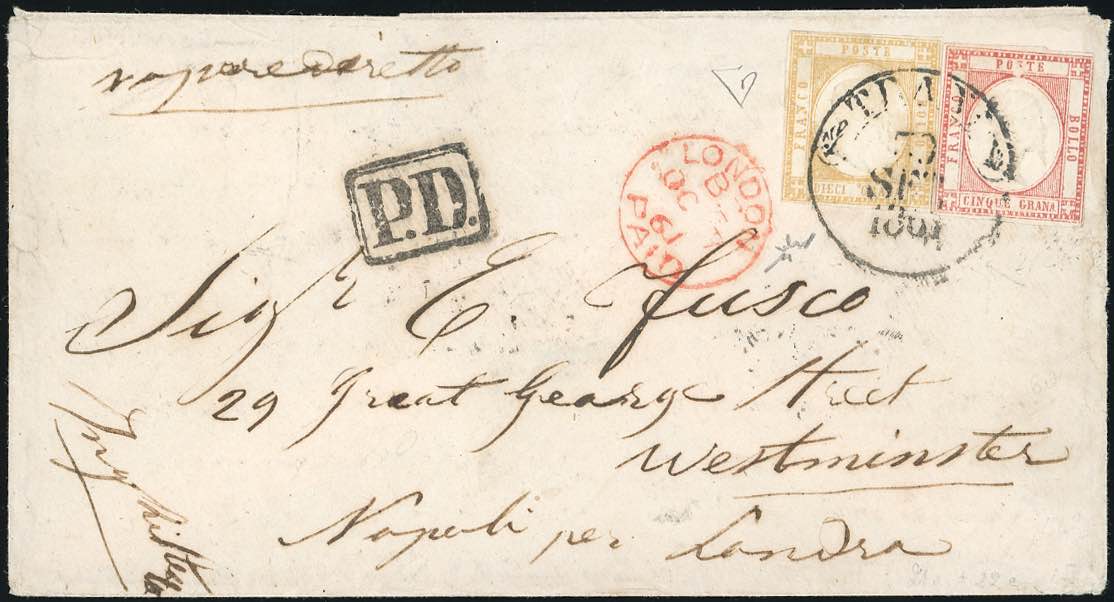 vapore diretto
POSTE
FRANCO
BOLLO
DIECI
POSTE
FRANCO
BOLLO
CINQUE GRANA
1861
LONDON
B
OC
61
PAID
P.D.
Sigr E. Fusco
29 Great George Street
Westminster
Napoli per Londra